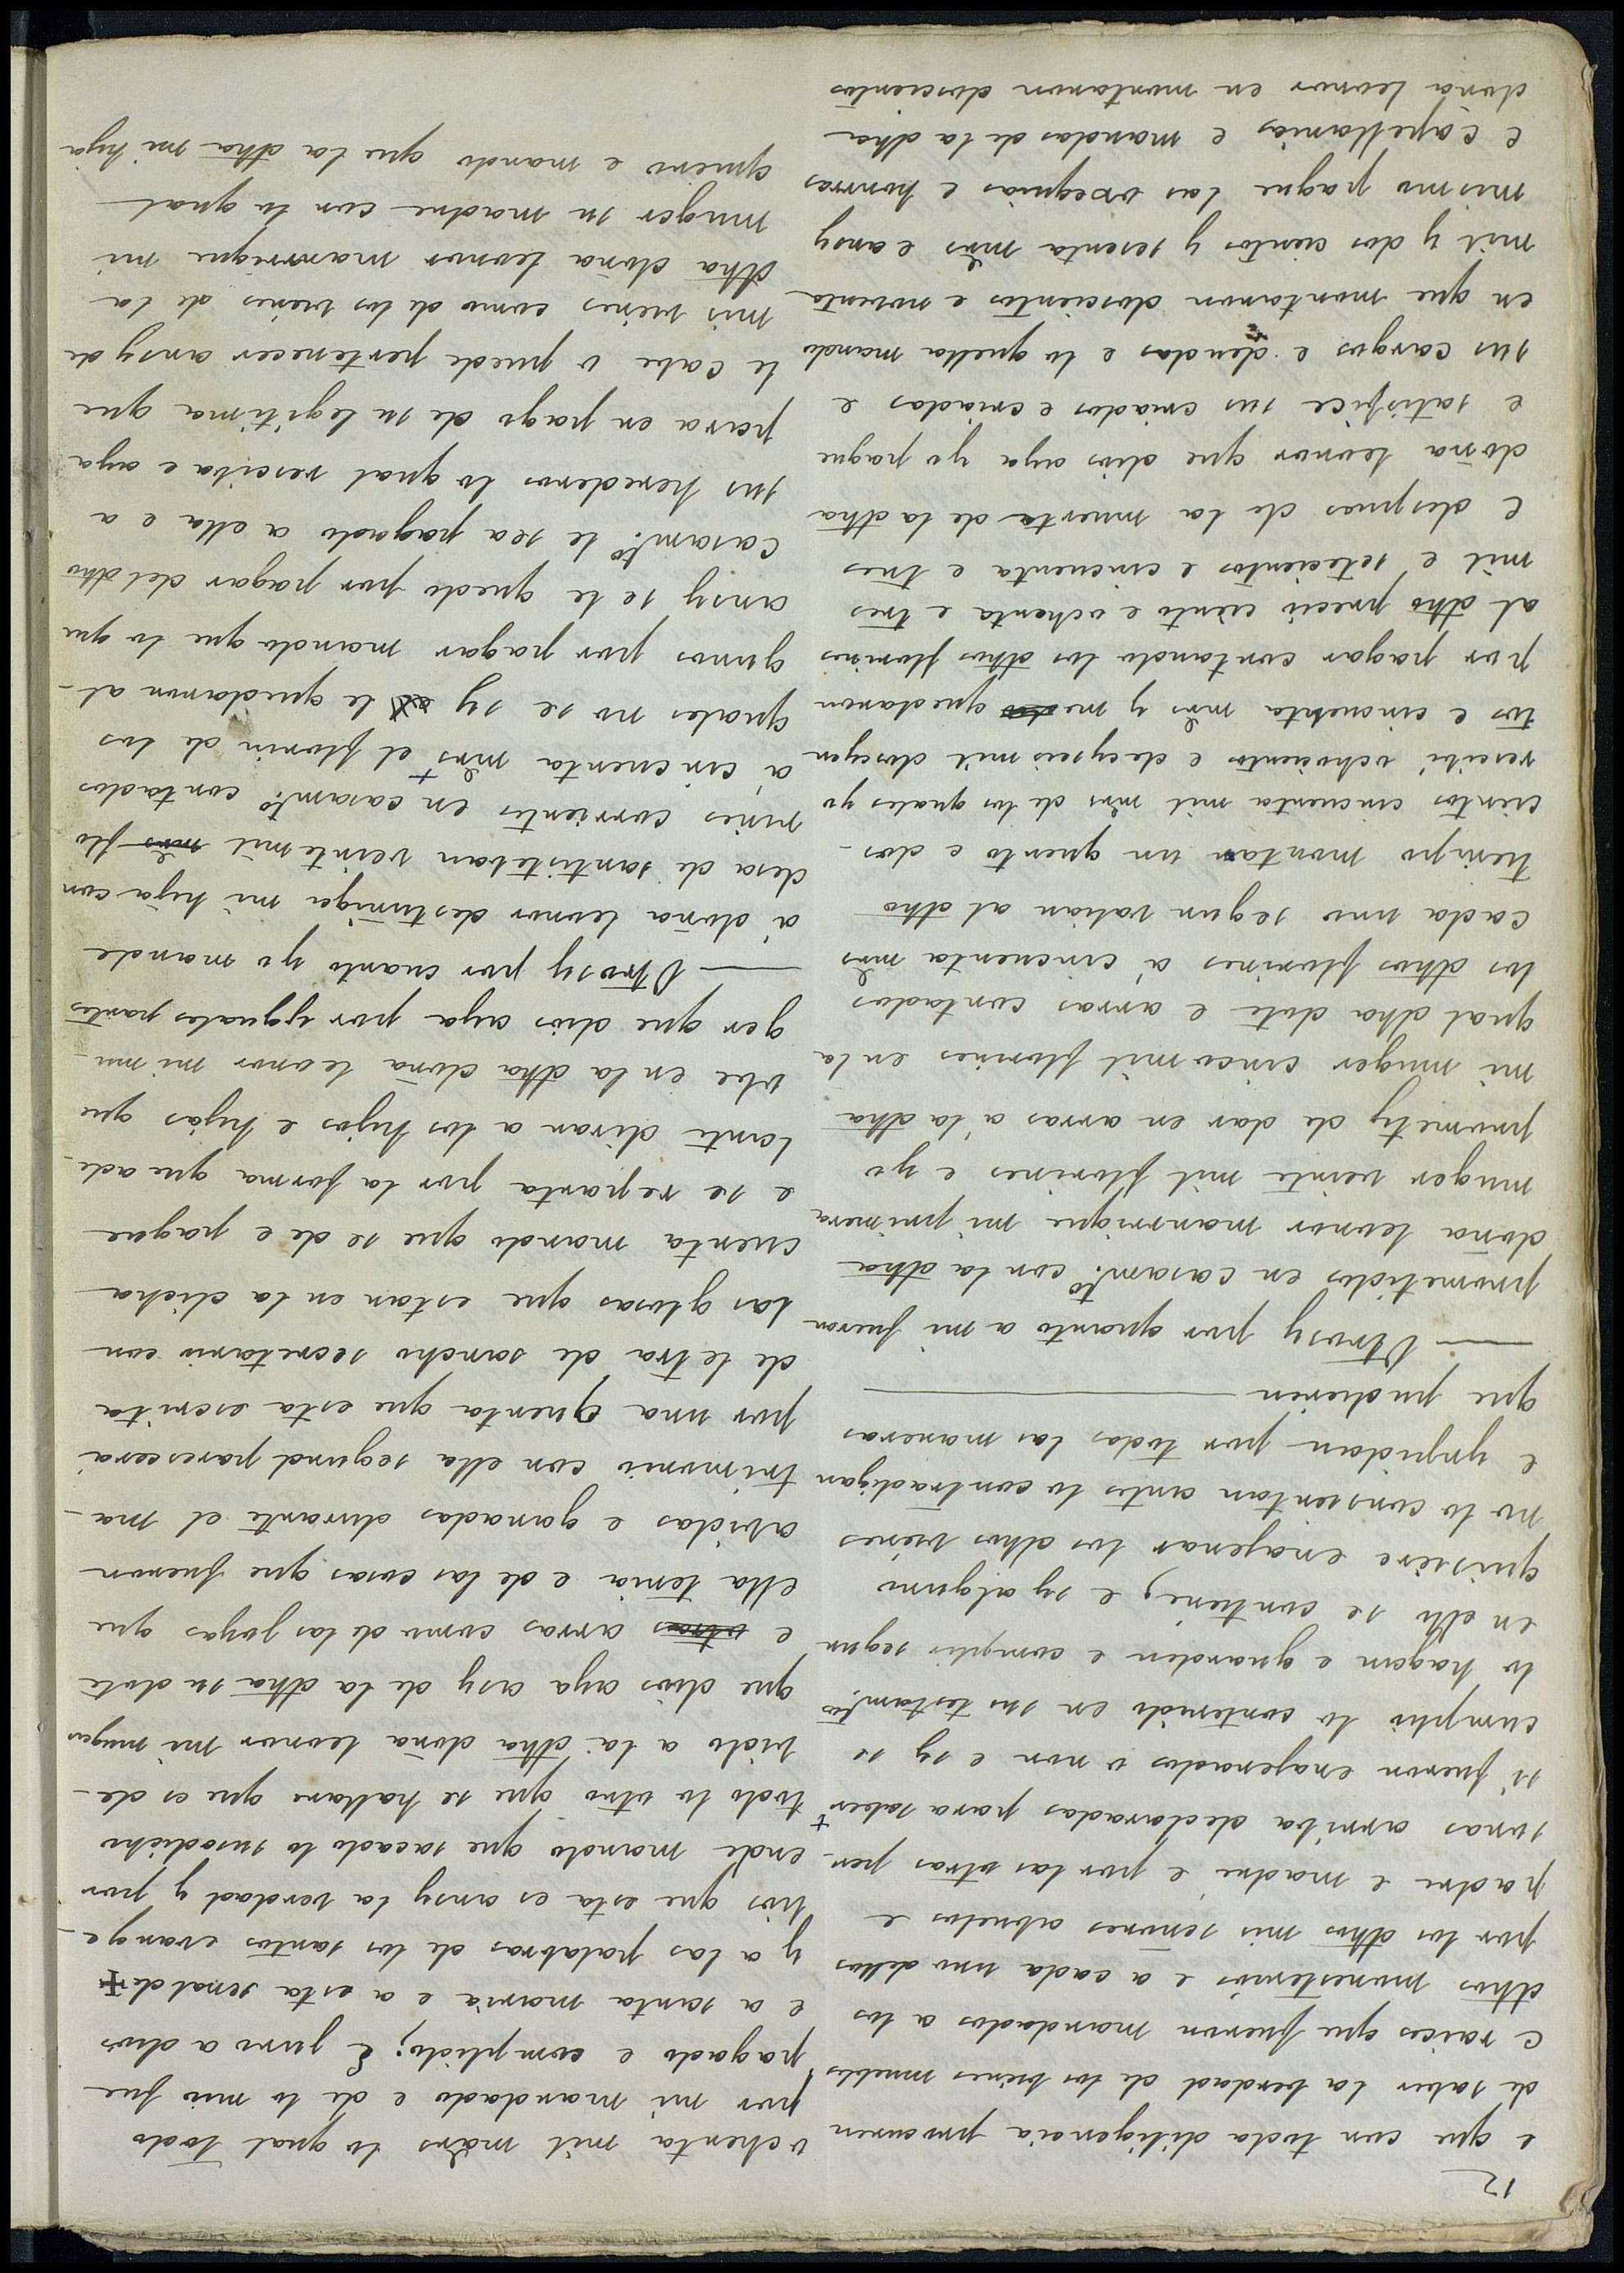 12
e que con toda diligencia procuren
de saber la berdad de los bienes muebles
e raices que fueron mandados a los
dhos monesterios e a cada uno dellos
por los dhos mis señores abuelos e
padre e madre e por las otras per-
sonas arriba declaradas para saber
si fueron enajenados o non e sy se
cumplio lo contenido en sus testamtos
lo hagan e guarden e complir segun
en ello se contiene, e sy alguno
quisiere enajenar los dhos bienes
no lo consientan antes lo contradigan
e ynpidan por todas las maneras
que pudieren
Otrosy por quanto a mi fueron
prometidos en casamto. con la dha
doña leonor manrrique mi primera
muger veinte mil florines e yo
promety de dar en arras a la dha
mi muger cinco mil florines en la
qual dha dote e arras contados
los dhos florines a cincuenta mrs
cada uno segun valian al dho
tienpo montan un quento e dos-
cientos cincuenta mil mrs de los quales yo
rescibi ochocientos e dieyseis mil doscyen
tos e cincuenta mrs y me quedaron
por pagar contando los dhos florines
al dho precio ciento e ochenta e tres
mil e setecientos e cincuenta e tres
E despues de la muerte de la dha
doña leonor que dios aya yo pague
e satisfice sus criados e criadas e
sus cargos e deudas e lo quella mando
en que montaron doscientos e noventa
mil y dos cientos y sesenta mrs e ansy
mismo pague las osequias e honrras
e capellanias e mandas de la dha
doña leonor en montaron doscientos
ochenta mil mars lo qual todo
por mi mandado e de lo mio fue
pagado e complido; E juro a dios
e a santa maria e a esta señal de ✝
y a las palabras de los santos evange-
lios que esta es ansy la verdad y por
ende mando que sacado lo susodicho
todo lo otro que se hallare que es de-
vido a la dha doña leonor mi muger
que dios aya asy de la dha su dote
e otras arras como de las joyas que
ella tenia e de las cosas que fueron
abidas e ganadas durante el ma-
trimonio con ella segund parescera
por una quenta que esta escrita
de letra de sancho secretario con
las glosas que estan en la dicha
cuenta mando que se de e pague
e se reparta por la forma que ade-
lante diran a los hijos e hijas que
obe en la dha doña leonor mi mu-
ger que dios aya por yguales partes
Otrosy por cuanto yo mande
a doña leonor destuñiga mi hija con
desa de santisteban veinte mil mrs flo
rines corrientes en casamto. contados
a cincuenta mrs el florin de los
quales no se sy le quedaron al-
gunos por pagar mando que lo que
ansy se le quedo por pagar del dho
casamto. le sea pagado a ella e a
sus herederos lo qual resciba e aya
para en pago de su legitima que
le cabe o puede pertenecer ansy de
mis bienes como de los bienes de la
dha doña leonor manrrique mi
muger su madre con lo qual
quiero e mando que la dha mi hija